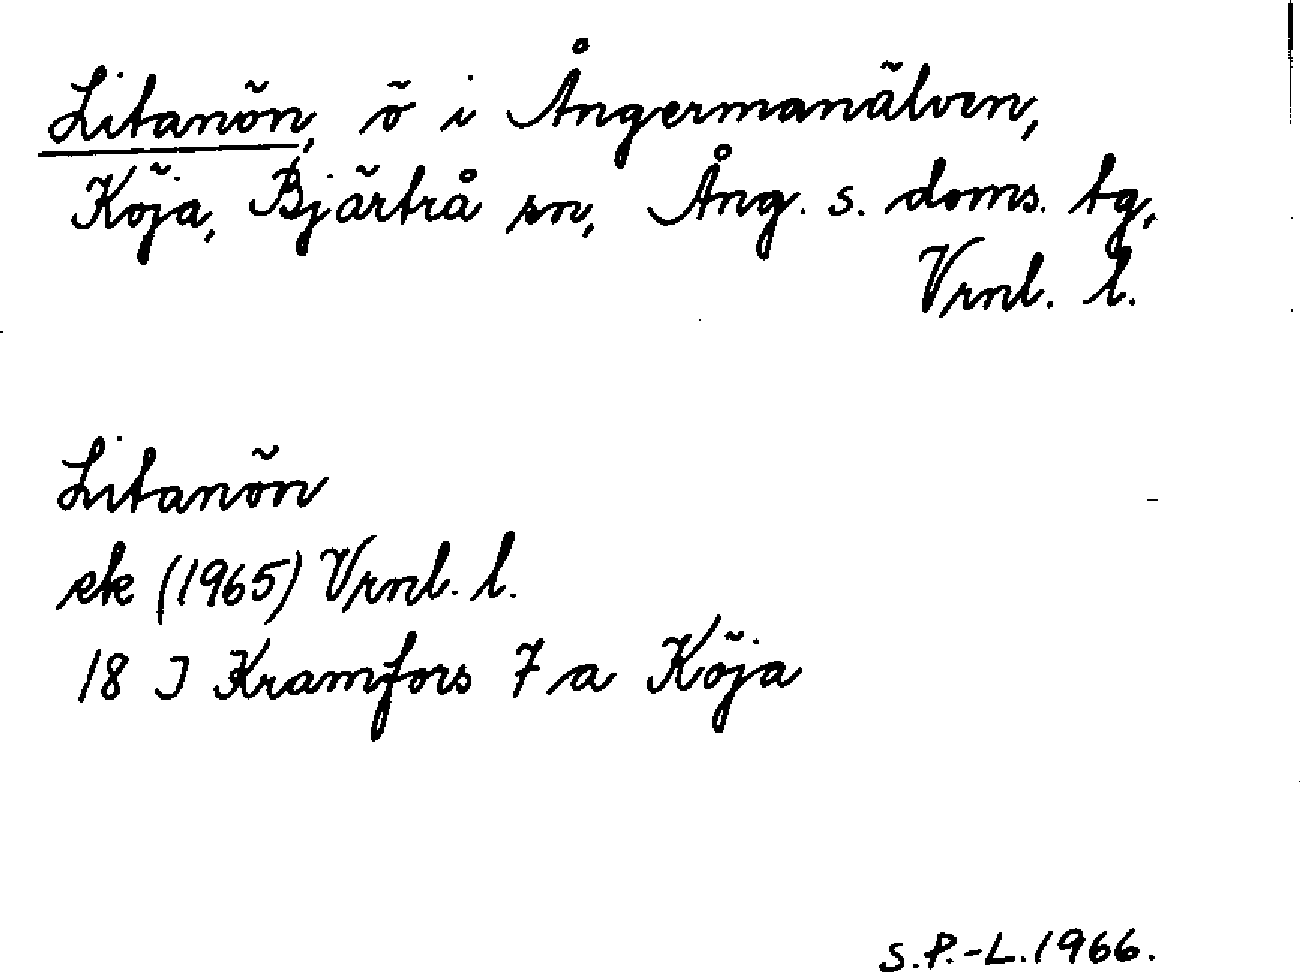 Litanön, ö i Ångermanälven,
Köja, Bjärtrå sn, Ång. s. doms. tg,
Vrnl. l.
Litanön
ek (1965) Vrnl. l.
18 J Kramfors 7 a Köja
S.P.-L.1966.